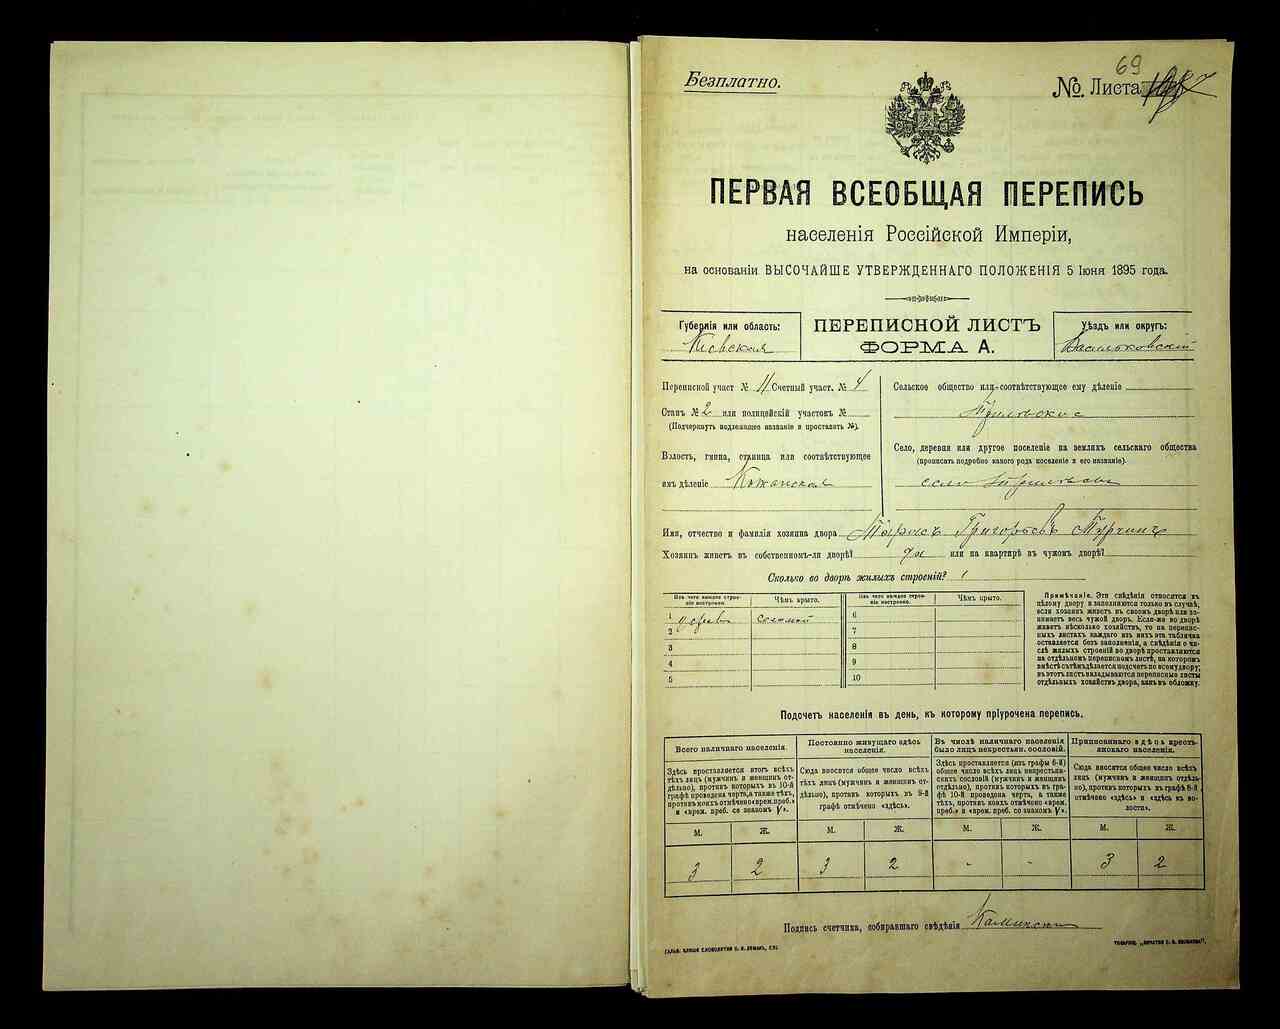 69
Безплатно.
№. Листа
ПЕРВАЯ ВСЕОБЩАЯ ПЕРЕПИСЬ
населенія Россійской Имперіи,
на основаніи ВЫСОЧАЙШЕ УТВЕРЖДЕННАГО ПОЛОЖЕНІЯ 5 Іюня 1895 года.
Губернія или область:
Кіевская
ПЕРЕПИСНОЙ ЛИСТЪ
ФОРМА А.
Уѣздъ или округъ:
Васильковскій
Переписной участ № 11 Счетный участ. № 4
Станъ № 2 или полицейскій участокъ №
(Подчеркнуть подлежащее названіе и проставить №).
Волость, гмина, станица или соотвѣтствующее
имъ дѣленіе Кожанская
Сельское общество или соотвѣтствующее ему дѣленіе
Трилѣское
Село, деревня или другое поселеніе на земляхъ сельскаго общества
(прописать подробно какого рода поселеніе и его названіе).
село Трилѣсы
Имя, отчество и фамилія хозяина двора Тарасъ Григорьевъ
Хозяинъ живетъ въ собственномъ-ли дворѣ? да или на квартирѣ въ чужомъ дворѣ?
Сколько во дворѣ жилыхъ строеній? 1
Изъ чего каждое строеніе построено.
Чѣмъ крыто.
Изъ чего каждое строеніе построено.
Чѣмъ крыто.
1 соломой
2
3
4
5
6
7
8
9
10
Примѣчаніе. Эти свѣдѣнія относятся къ
цѣлому двору и заполняются только въ случаѣ,
если хозяинъ живетъ въ своемъ дворѣ или занимаетъ
весь чужой дворъ. Если-же во дворѣ
живетъ нѣсколько хозяйствъ, то на переписныхъ
листахъ каждаго изъ нихъ эта табличка
оставляется безъ заполненія, а свѣдѣнія о числѣ
жилыхъ строеній во дворѣ проставляются
на отдѣльномъ переписномъ листѣ, на которомъ
вмѣстѣ съ тѣмъ дѣлается подсчетъ по всему двору;
въ этотъ листъ вкладываются переписные листы
отдѣльныхъ хозяйствъ двора, какъ въ обложку.
Подсчетъ населенія въ день, къ которому пріурочена перепись.
Всего наличнаго населенія.
Постоянно живущаго здѣсь населенія.
Въ числѣ наличнаго населенія было лицъ некрестьян. сословій.
Приписаннаго здѣсь крестьянскаго населенія.
Здѣсь проставляется итогъ всѣхъ
тѣхъ лицъ (мужчинъ и женщинъ отдѣльно),
противъ которыхъ въ 10-й
графѣ проведена черта, а также тѣхъ,
противъ коихъ отмѣчено «врем. преб.»
и «врем. преб. со знакомъ V».
Сюда вносится общее число всѣхъ
тѣхъ лицъ (мужчинъ и женщинъ отдѣльно),
противъ которыхъ въ 9-й
графѣ отмѣчено «здѣсь».
Здѣсь проставляется (изъ графы 6-й)
общее число всѣхъ лицъ некрестьянскихъ
сословій (мужчинъ и женщинъ
отдѣльно), противъ которыхъ въ графѣ
10-й проведена черта, а также
тѣхъ, противъ коихъ отмѣчено «врем.
преб.» и «врем. преб. со знакомъ V».
Сюда вносятъ общее число всѣхъ
лицъ (мужчинъ и женщинъ отдѣльно),
противъ которыхъ въ графѣ 8-й
отмѣчено «здѣсь» и «здѣсь въ волости».
М. Ж. М. Ж. М. Ж. М. Ж.
3 2 3 2 - - 3 2
Подпись счетчика, собиравшаго свѣдѣнія